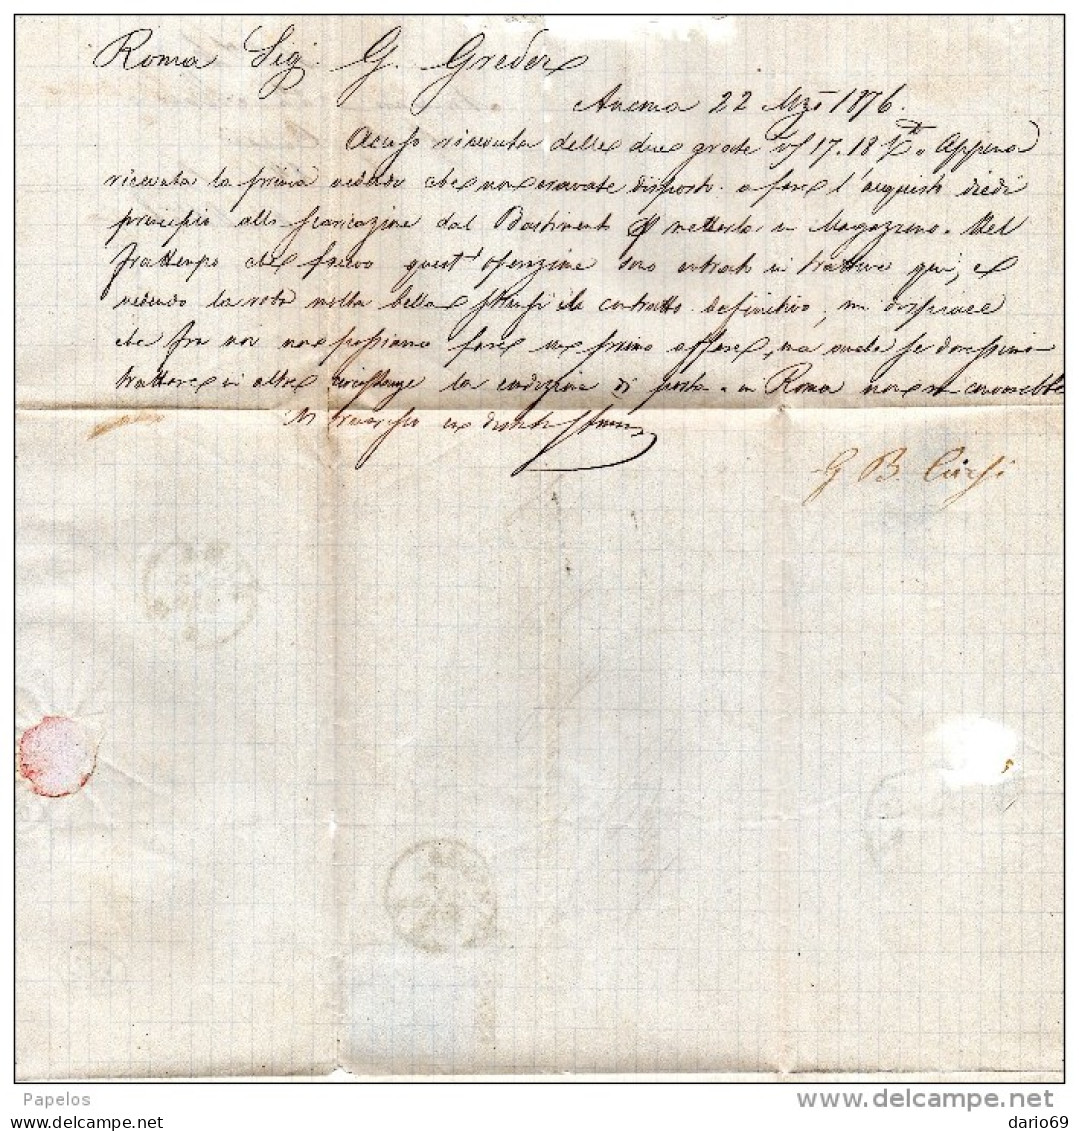 Roma Sig. G. Greder
Ancona 22 Mzo 1876.
Accuso ricevuta delle due grate vs 17.18 Appena
ricevuta la prima vedendo che non eravate disposti a fare l'acquisto diedi
principio alla scaricazione dal Bastimento e metterlo in Magazzeno. Nel
frattempo che facevo quest'operazione sono entrato in trattive qui, e
vedendo la roba molto bella strinsi il contratto definitivo, mi dispiace
che fra noi non possiamo fare un primo affare, ma anche se dovessimo
trattare in altre circostanze la condizione di posta in Roma non mi converrebbe
Vi riverisco con distinta stima
G B.
Papelos
delcampe.net
dario69